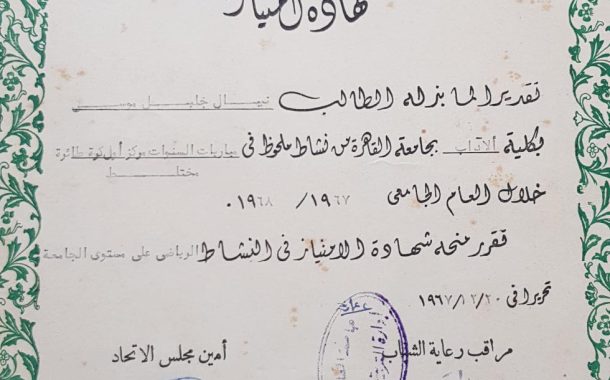 شهادة امتياز
تقديرا لما بذله الطالب نيسال خليل
بكلية الاداب بجامعة القاهرة من نشاط ملحوظ فى مباريات السنوات مركز أول كرة طائرة
مختلط
خلال العام الجامعى ١٩٦٧ / ١٩٦٨ .
تقرر منحه شهادة الامتياز فى النشاط الرياضى على مستوى الجامعة
تحريرا فى ٢٠ / ١٢ / ١٩٦٧
مراقب رعاية الشباب
أمين مجلس الاتحاد